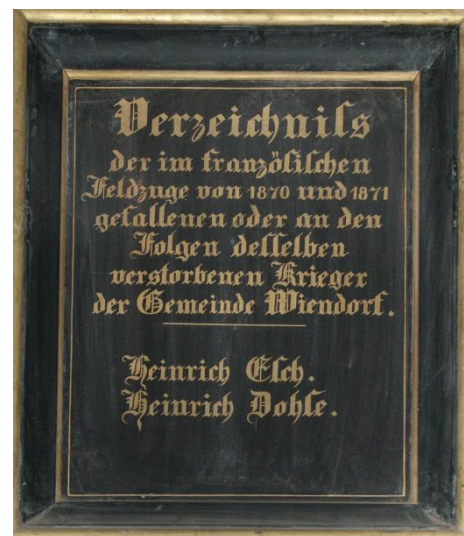 Verzeichniſs
der im franzöſiſchen
Feldzuge von 1870 und 1871
gefallenen oder an den
Folgen deſſelben
verstorbenen Krieger
der Gemeinde Wiendorf.
Heinrich Eſch.
Heinrich Dohſe.